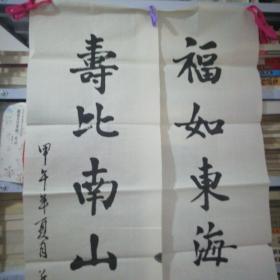 福如東海
壽比南山
甲午年夏月